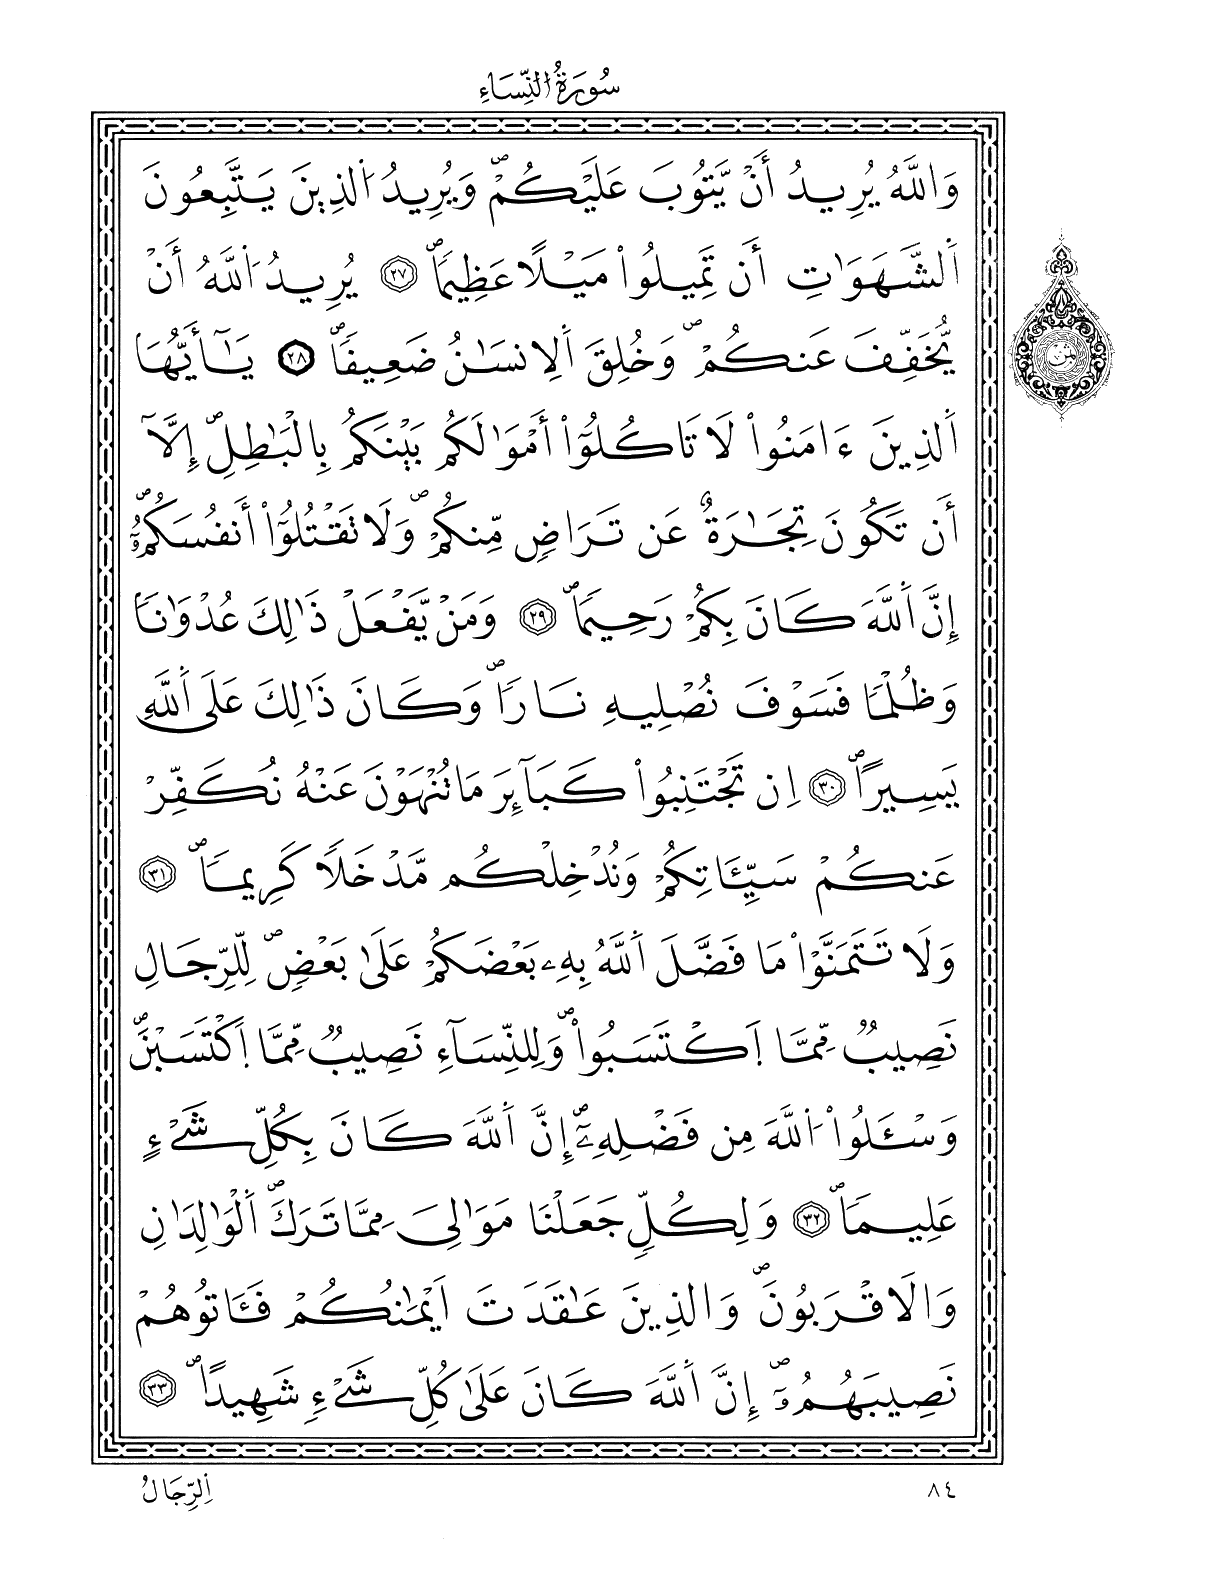 سُورَةُ النِّسَاءِ
وَاللَّهُ يُرِيدُ أَنْ يَّتُوبَ عَلَيْكُمْ ۖ وَيُرِيدُ اُ۬لذِينَ يَتَّبِعُونَ
اَ۬لشَّهَوَٰتِ أَن تَمِيلُواْ مَيْلاً عَظِيماٗ ۖ ٢٧ يُرِيدُ اُ۬للَّهُ أَنْ
يُّخَفِّفَ عَنكُمْ ۖ وَخُلِقَ اَ۬لِانسَٰنُ ضَعِيفاٗ ۖ ٢٨ يَٰٓأَيُّهَا
اَ۬لذِينَ ءَامَنُواْ لَا تَاكُلُوٓاْ أَمْوَٰلَكُم بَيْنَكُم بِالْبَٰطِلِ ۖ إِلَّآ
أَن تَكُونَ تِجَٰرَةٌ عَن تَرَاضٖ مِّنكُمْ ۖ وَلَا تَقْتُلُوٓاْ أَنفُسَكُمُۥٓ ۖ
إِنَّ اَ۬للَّهَ كَانَ بِكُمْ رَحِيماٗ ۖ ٢٩ وَمَنْ يَّفْعَلْ ذَٰلِكَ عُدْوَٰناٗ
وَظُلْماٗ فَسَوْفَ نُصْلِيهِ نَاراٗ ۖ وَكَانَ ذَٰلِكَ عَلَى اَ۬للَّهِ
يَسِيراً ۖ ٣٠ اِن تَجْتَنِبُواْ كَبَآئِرَ مَا تُنْهَوْنَ عَنْهُ نُكَفِّرْ
عَنكُمْ سَيِّـَٔاتِكُمْ وَنُدْخِلْكُم مَّدْخَلاٗ كَرِيماٗ ۖ ٣١
وَلَا تَتَمَنَّوْاْ مَا فَضَّلَ اَ۬للَّهُ بِهِۦ بَعْضَكُمْ عَلَىٰ بَعْضٖ ۖ لِّلرِّجَالِ
نَصِيبٞ مِّمَّا اَ۪كْتَسَبُواْ ۖ وَلِلنِّسَآءِ نَصِيبٞ مِّمَّا اَ۪كْتَسَبْنَ ۖ
وَسْـَٔلُواْ اُ۬للَّهَ مِن فَضْلِهِۦٓ ۖ إِنَّ اَ۬للَّهَ كَانَ بِكُلِّ شَےْءٍ
عَلِيماٗ ۖ ٣٢ وَلِكُلّٖ جَعَلْنَا مَوَٰلِىَ مِمَّا تَرَكَ ۖ اَ۬لْوَٰلِدَٰنِ
وَالَاقْرَبُونَ ۖ وَالذِينَ عَٰقَدَتَ اَيْمَٰنُكُمْ فَـَٔاتُوهُمْ
نَصِيبَهُمُۥٓ ۖ إِنَّ اَ۬للَّهَ كَانَ عَلَىٰ كُلِّ شَےْءٖ شَهِيداً ۖ ٣٣
٨٤
اَ۬لرِّجَالُ
ثمن